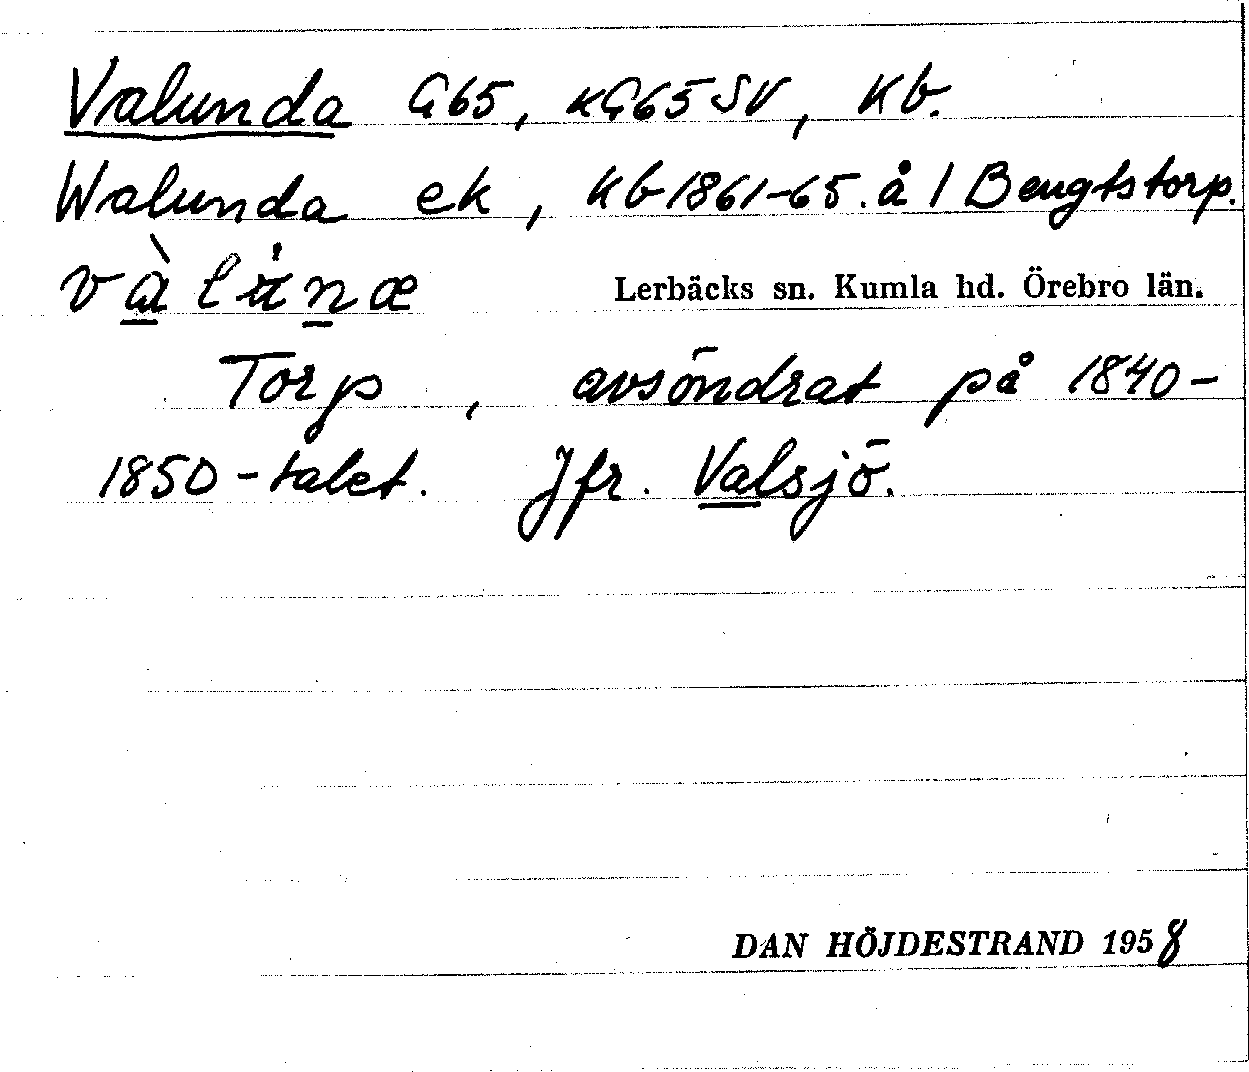 Valunda G65, KG65SV, Kb.
Walunda ek, Kb 1861-65. å / Bengtstorp.
Lerbäcks sn. Kumla hd. Örebro län.
Torp, avsöndrat på 1840-
1850-talet. Jfr. Valsjö.
DAN HÖJDESTRAND 1958